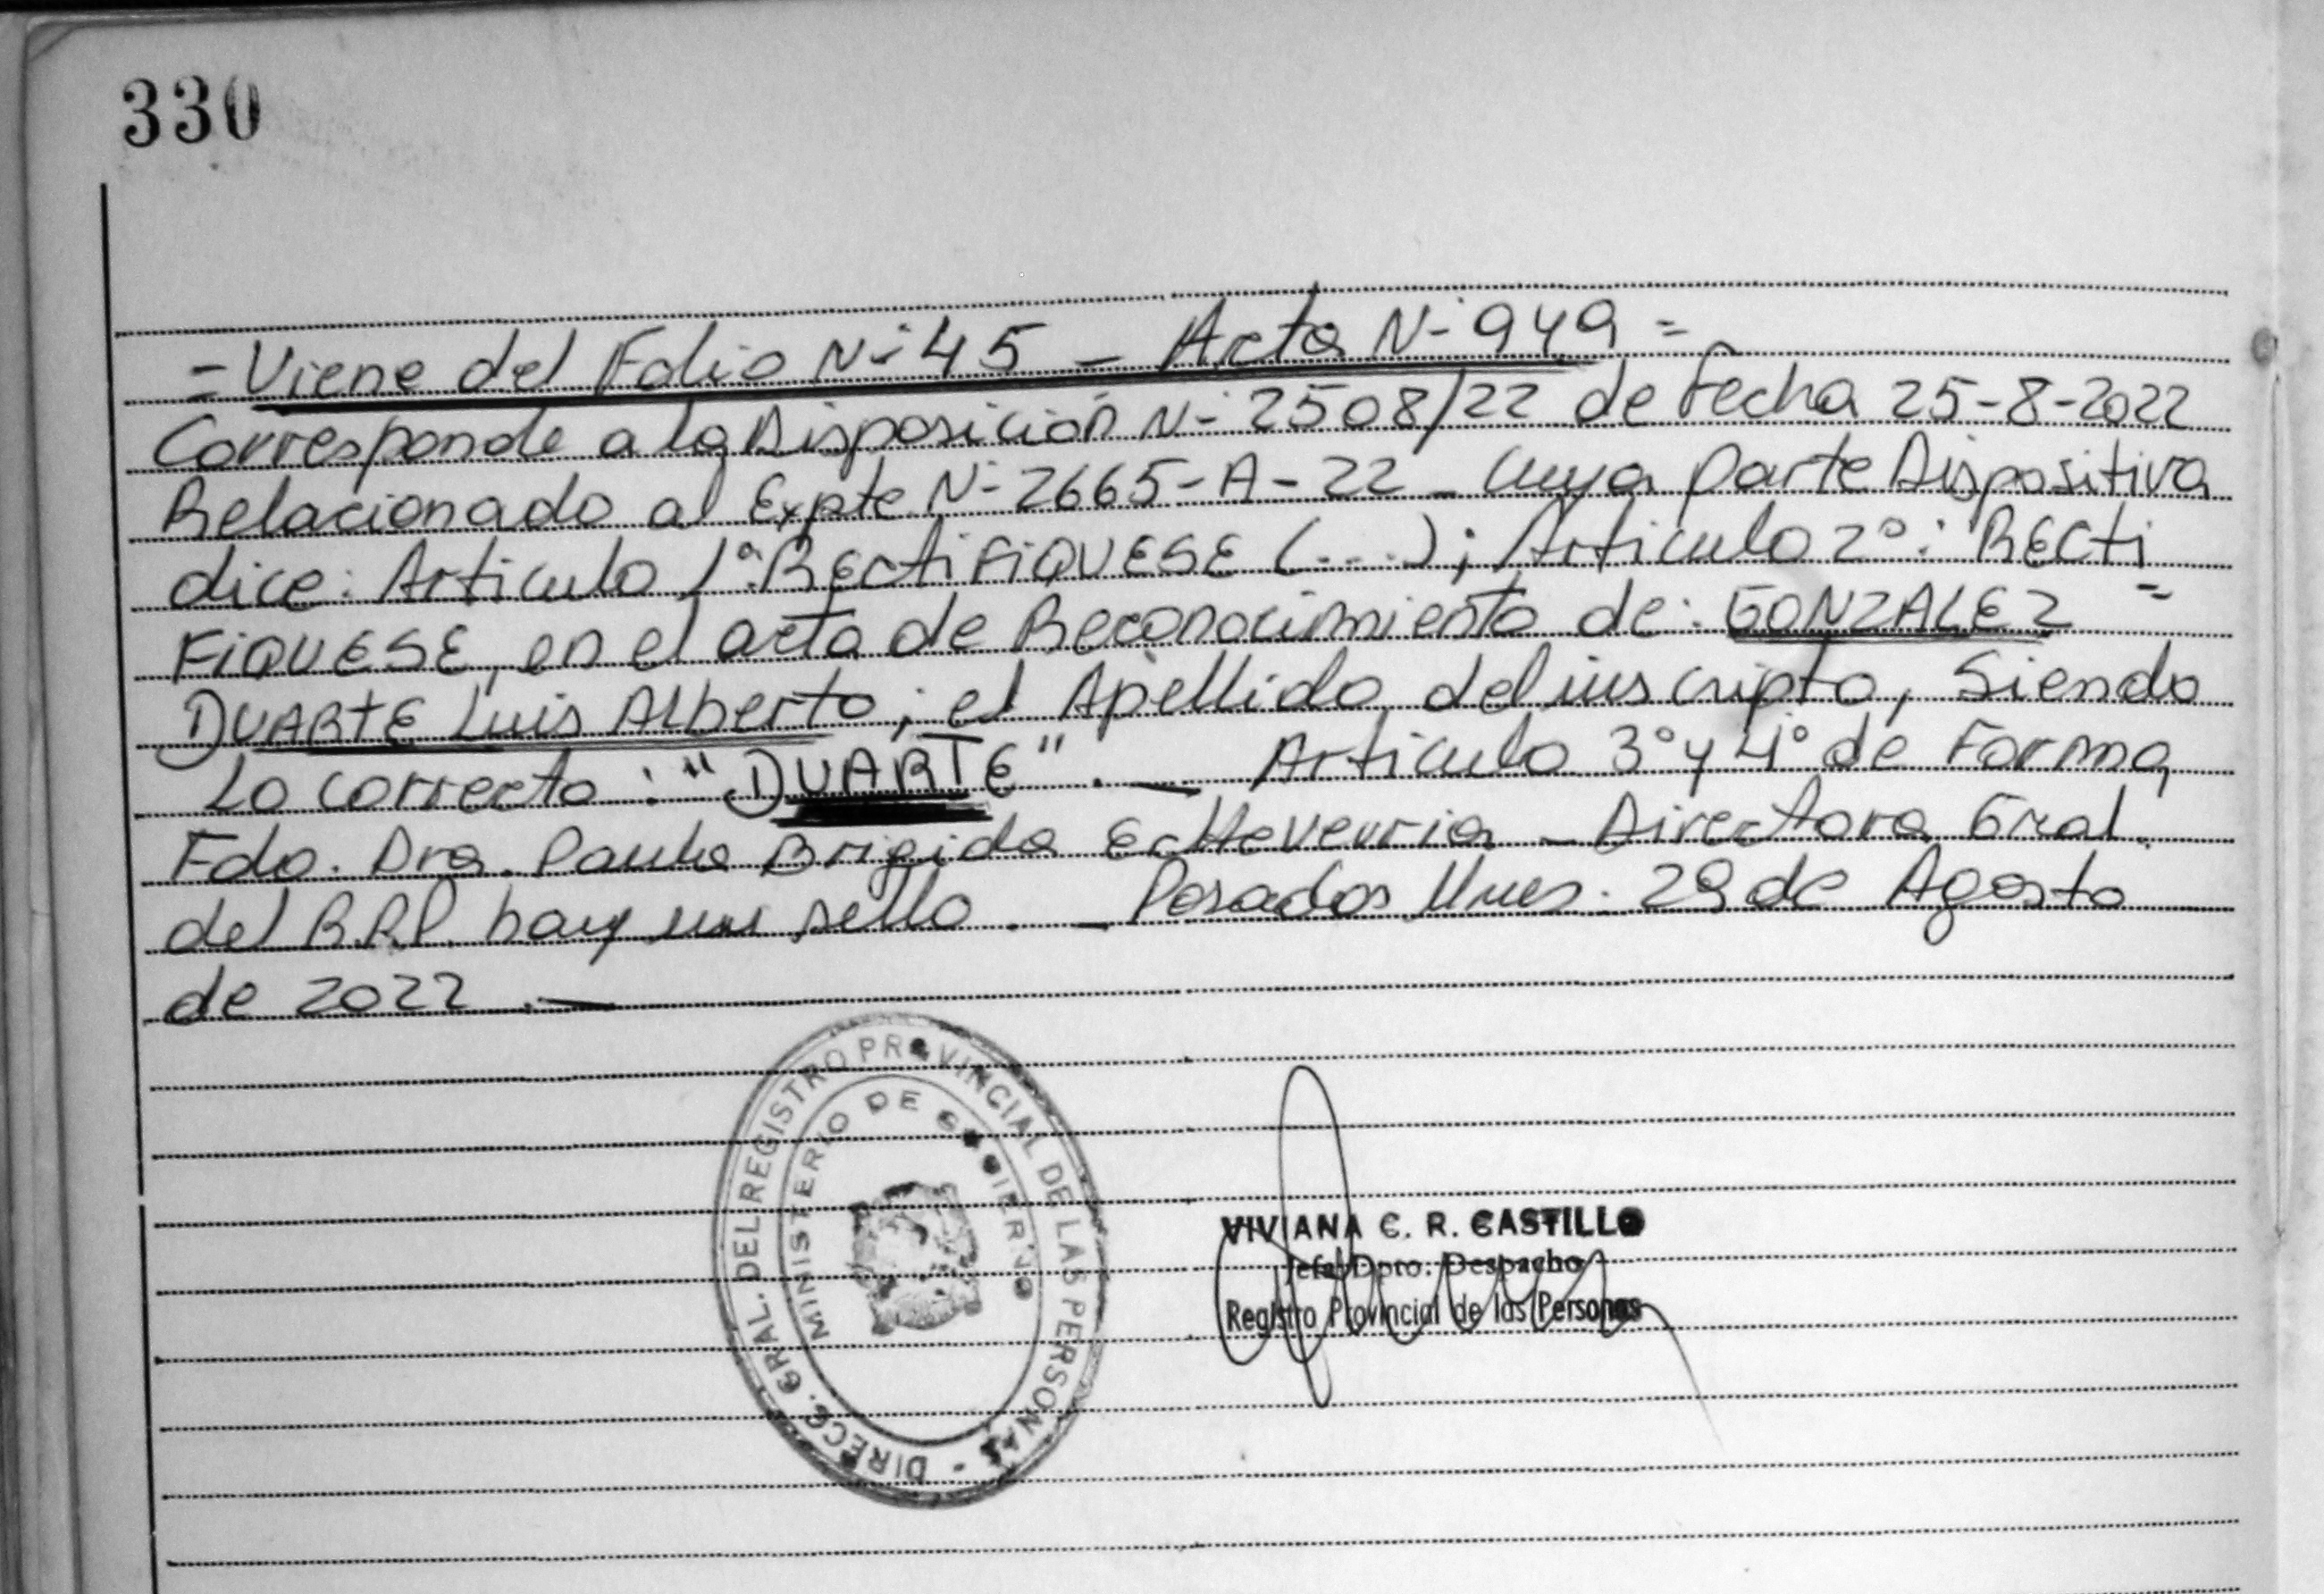 330
= Viene del Folio N- 45 - Acta N- 949 =
Corresponde a la Disposición N- 2508/22 de Fecha 25-8-2022
Relacionado al Expte N- 2665-A-22 - cuya parte Dispositiva
dice: Articulo 1° RECtiFiQUESE (...); Articulo 2°: RECti
FiQUESE, en el acta de Reconocimiento de: GONZALEZ =
DUARTE Luis Alberto; el Apellido del inscripto, Siendo
Lo correcto: "DUARTE". - Articulo 3° y 4° de Forma
Fdo. Dra. Paula Brigida Echeverria - Directora Gral.
del R.P.P. hay un sello. - Posadas Mnes. 29 de Agosto
de 2022. -
DIRECC. GRAL. DEL REGISTRO PROVINCIAL DE LAS PERSONAS -
MINISTERIO DE GOBIERNO
VIVIANA C. R. CASTILLO
Jefa Dpto. Despacho
Registro Provincial de las Personas